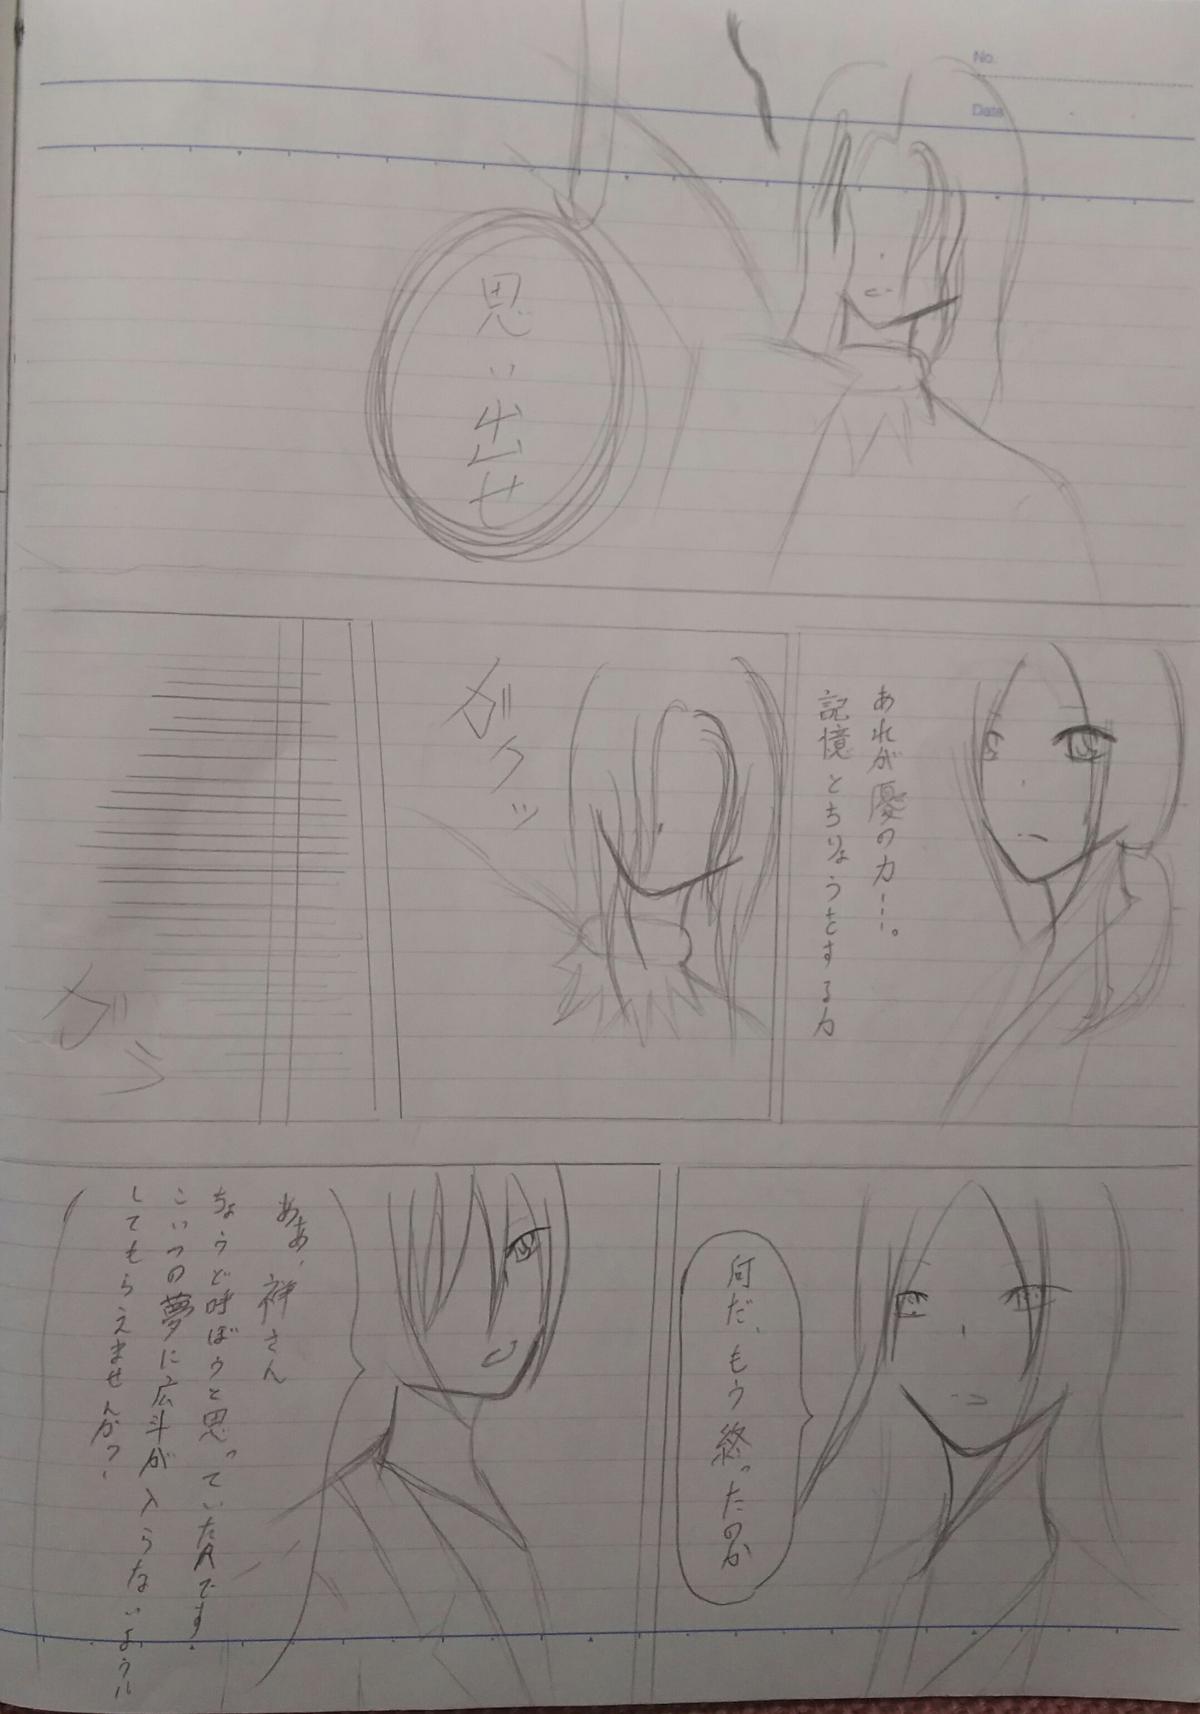 No.
Date
思い出せ
あれが優の力…。
記憶とちりょうをする力
ガクッ
ガラ
何だ、もう終ったのか
ああ、祥さん
ちょうど呼ぼうと思っていたんです
こいつの夢に広斗が入らないように
してもらえませんか?